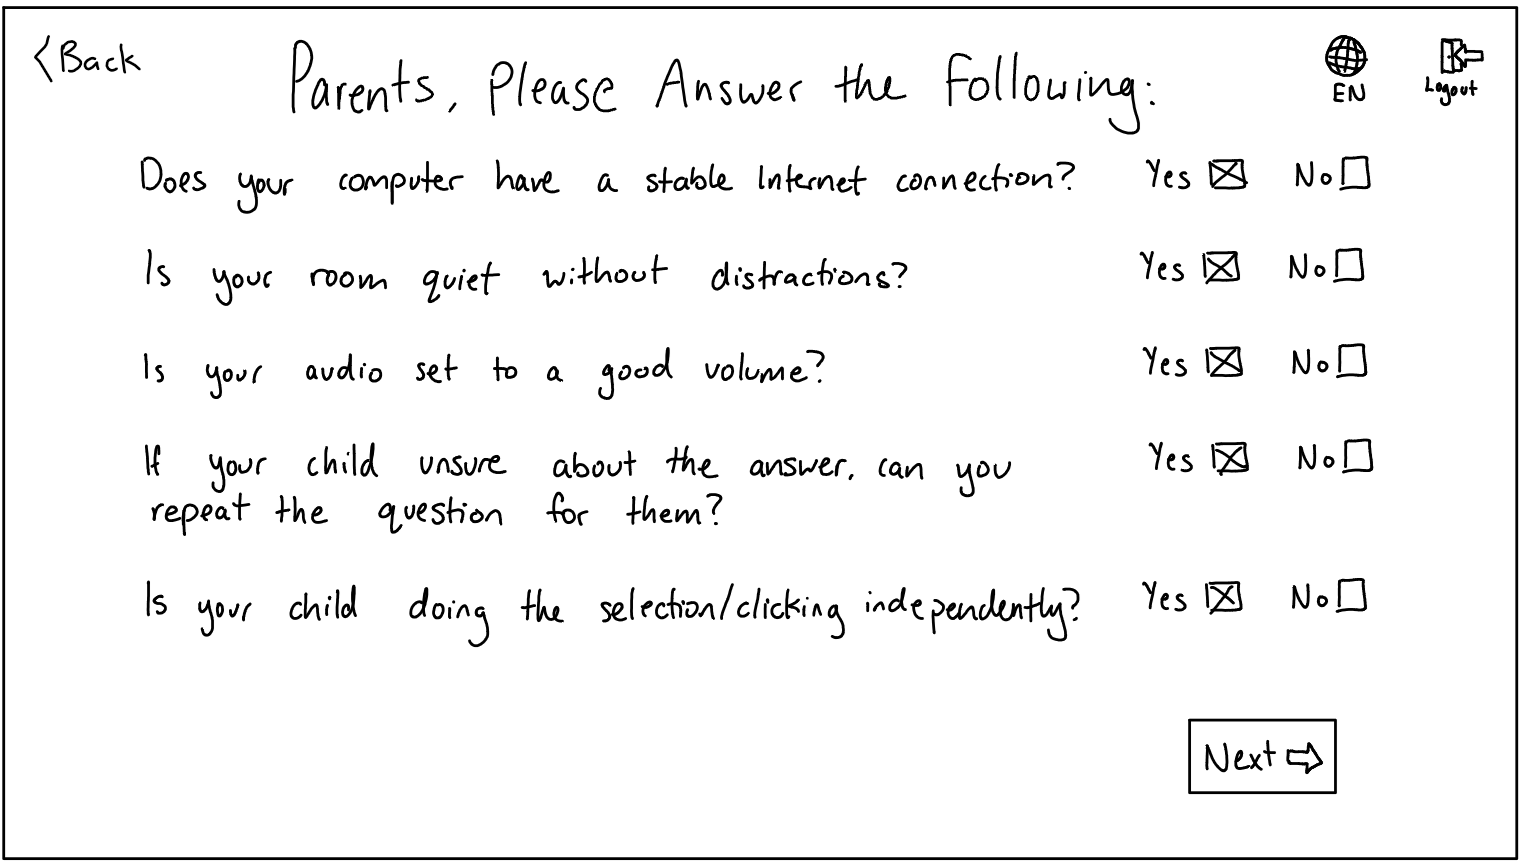 <Back
Parents, Please Answer the Following:
EN
Logout
Does your computer have a stable Internet connection? Yes ☒ No ☐
Is your room quiet without distractions? Yes ☒ No ☐
Is your audio set to a good volume? Yes ☒ No ☐
If your child unsure about the answer, can you Yes ☒ No ☐
repeat the question for them?
Is your child doing the selection/clicking independently? Yes ☒ No ☐
Next ⇨